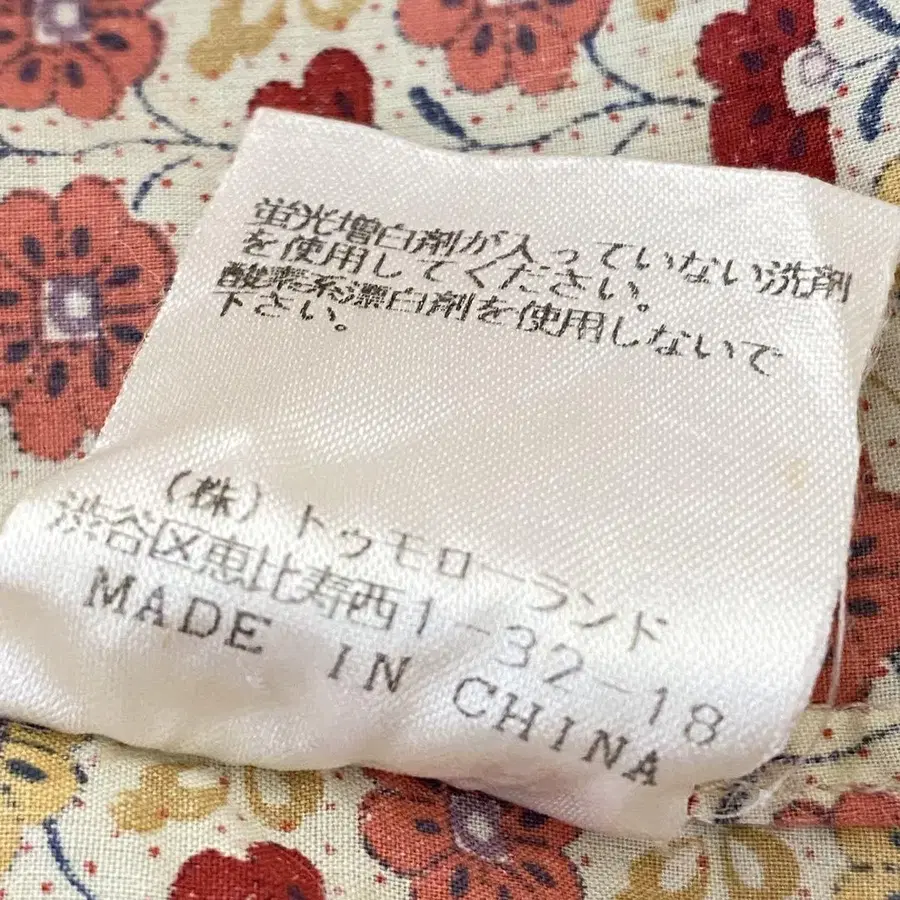 蛍光増白剤が入っていない洗剤
を使用してください。
酸素系漂白剤を使用しないで
下さい。
(株)トゥモローランド
渋谷区恵比寿西1-32-18
MADE IN CHINA